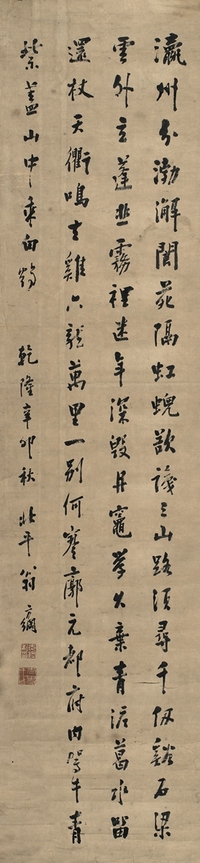 瀛州分渤澥閬苑隔虹蜺欲識三山路須尋千仞谿石梁
雲外立蓬丘霧裡迷年深毀丹竈學久棄青泥葛水留
還杖天衢鳴去雞六龍萬里一別何寥廓元都府內駕牛青
紫蓋山中乘白鶴 乾隆辛卯秋 北平翁方綱